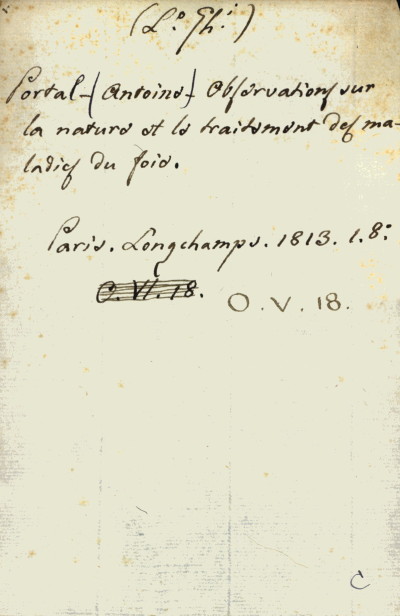 (L.º Gh.ⁱ)
Portal (Antoine) Observations sur
la nature et le traitement des ma-
ladies du foie.
Paris. Longchamps. 1813. 1.8:
O.VI.18. O.V.18.
C